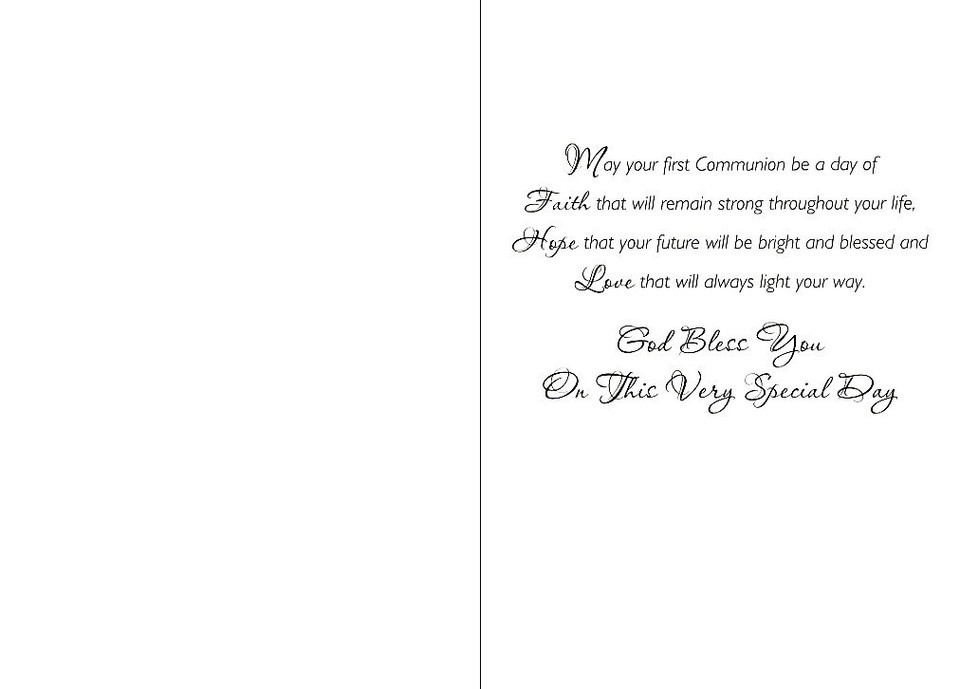 May your first Communion be a day of
Faith that will remain strong throughout your life,
Hope that your future will be bright and blessed and
Love that will always light your way.
God Bless You
On This Very Special Day